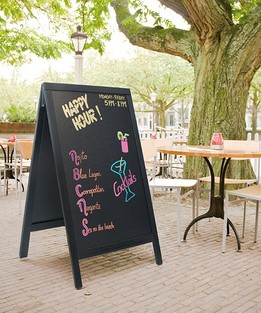 HAPPY
HOUR!
MONDAY-FRIDAY
5PM - 8PM
Mojito
Blue Lagoon
Cosmopolitan
Margarita
Sex on the beach
Cocktails